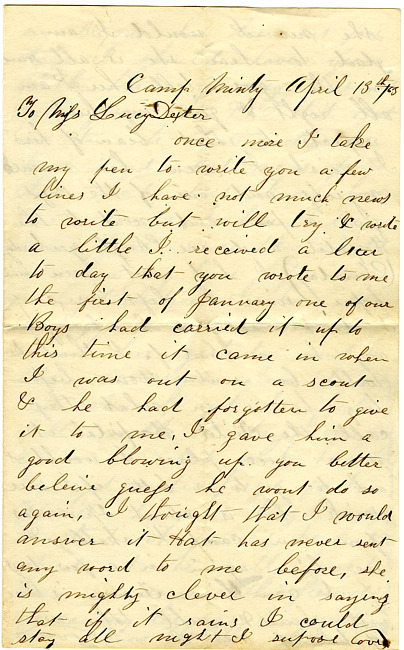 Camp Minty April 13th /63
To Miss Lucy Dexter
once more I take
my pen to write you a few
lines I have not much news
to write but will try & write
a little I received a
to day that you wrote to me
the first of January one of our
Boys had carried it up to
this time it came in when
I was out on a scout
& he had forgotten to give
it to me, I gave him a
good blowing up you better
beleive guess he wont do so
again, I thought that I would
answer it has never sent
any word to me before, she
is mighty clever in saying
that if it rains I could
stay all night I supose